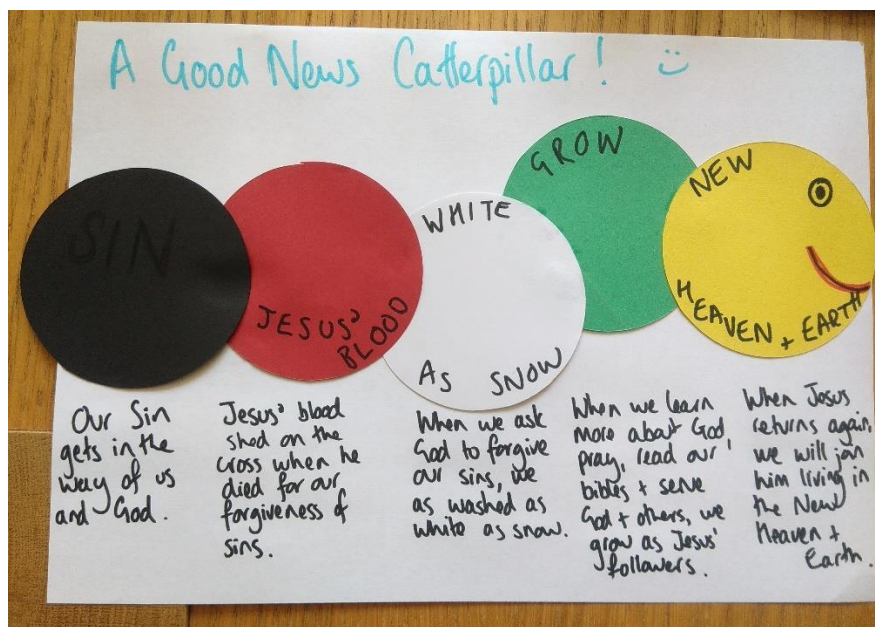 A Good News Catterpillar! :)
SIN
JESUS'
BLOOD
WHITE
AS SNOW
GROW
NEW
HEAVEN + EARTH
Our Sin
gets in the
way of us
and God.
Jesus' blood
shed on the
cross when he
died for our
forgiveness of
sins.
When we ask
God to forgive
our sins, we
as washed as
white as snow.
When we learn
more about God,
pray, read our
bibles + serve
God + others, we
grow as Jesus'
followers.
When Jesus
returns again,
we will join
him living in
the New
Heaven +
Earth.